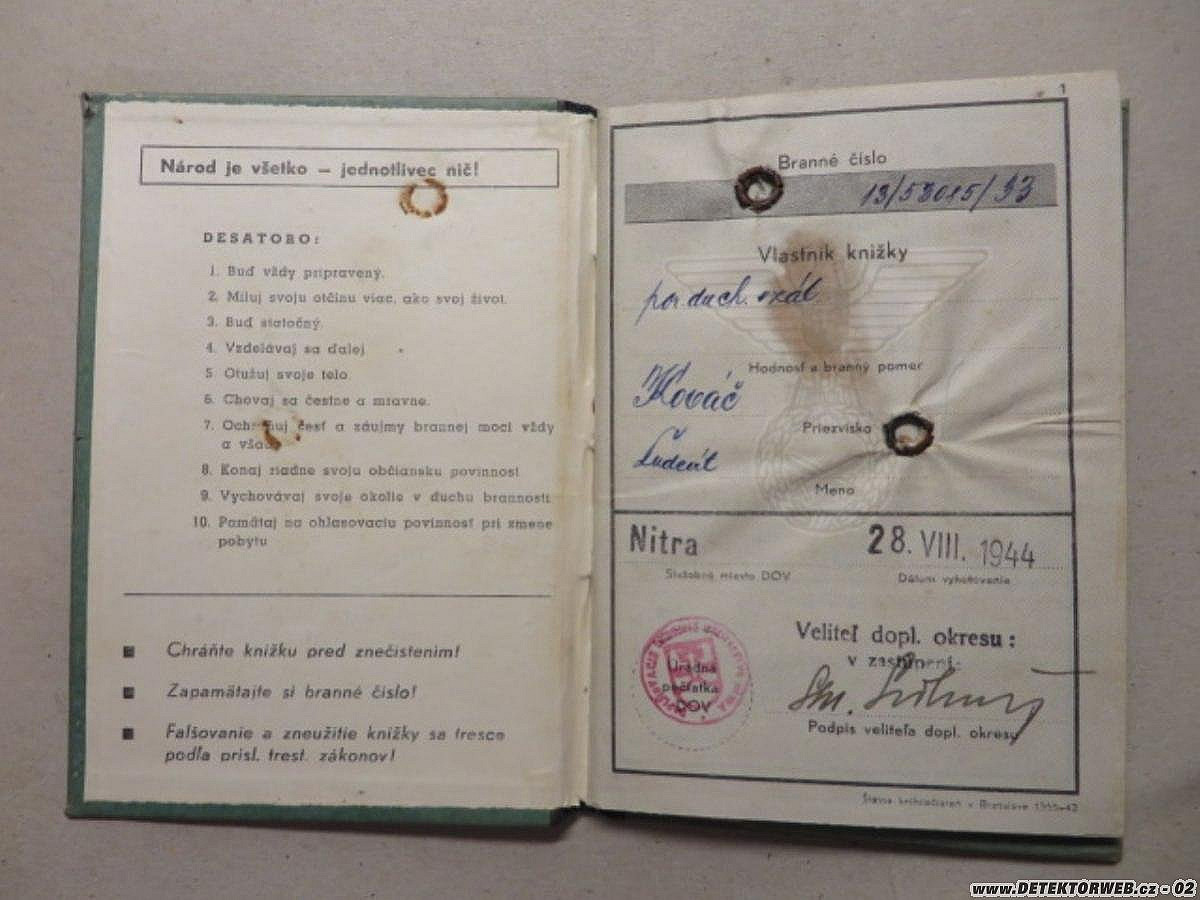 Národ je všetko – jednotlivec nič!
DESATORO:
1. Buď vždy pripravený.
2. Miluj svoju otčinu viac, ako svoj život.
3. Buď statočný.
4. Vzdelávaj sa ďalej
5. Otužuj svoje telo
6. Chovaj sa čestne a mravne.
7. česť a záujmy brannej moci vždy
a
8. Konaj riadne svoju občiansku povinnosť
9. Vychovávaj svoje okolie v duchu brannosti
10. Pamätaj na ohlasovaciu povinnosť pri zmene
pobytu
Chráňte knižku pred znečistením!
Zapamätajte si branné číslo!
Falšovanie a zneužitie knižky sa tresce
podľa prísl. trest. zákonov!
1
Branné číslo
Vlastník knižky
por. duch.
Hodnosť a branný pomer
Kováč
Priezvisko
Meno
Nitra
28. VIII. 1944
Služobné miesto DOV
Dátum vyhotovenia
Veliteľ dopl. okresu:
v zastúpení:
Úradná
pečiatka
DOV
Podpis veliteľa dopl. okresu
www.DETEKTORWEB.cz - 02